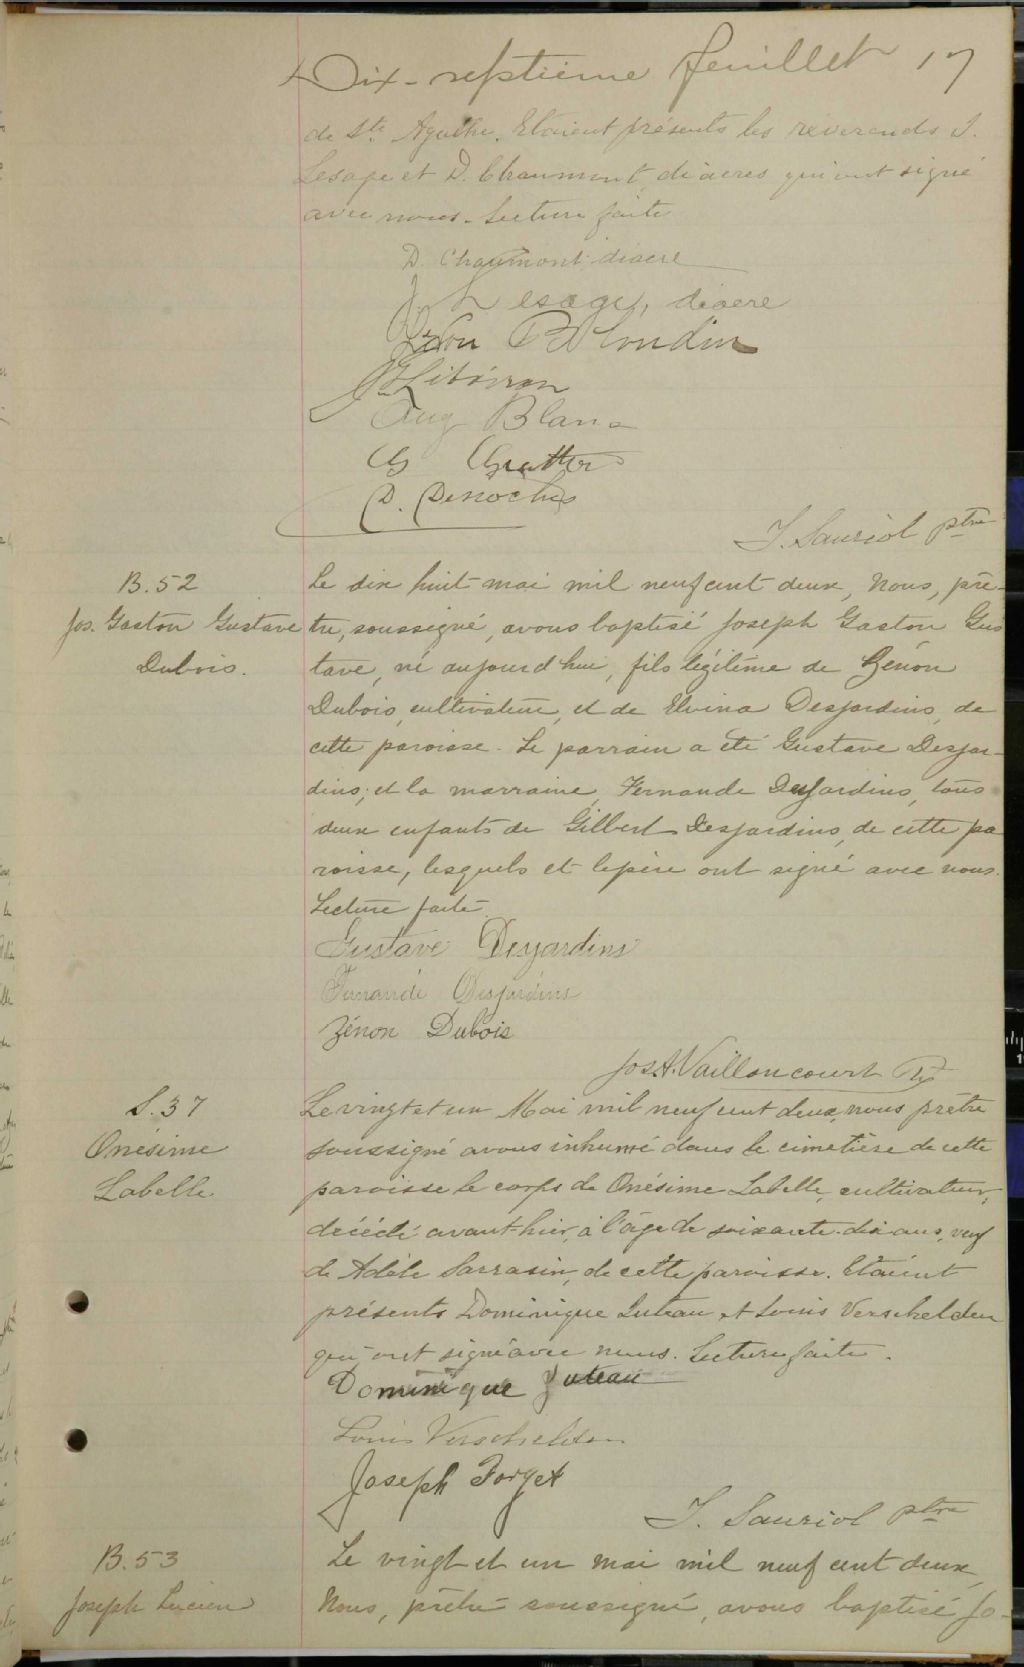 Dix-septième feuillet 17
de Ste Agathe. Etaient présents les révérends J.
Lesage et D. Chaumont, diacres qui ont signé
avec nous. Lecture faite
D. Chaumont diacre
J. Lesage, diacre
Blondin
Aug Blanc
D. Desroches
J. Sauriol ptre
B.52
Jos. Gaston Gustave
Dubois.
Le dix huit mai mil neuf cent deux, Nous, prê-
tre, soussigné, avons baptisé Joseph Gaston Gus
tave, né aujourd'hui, fils légitime de Zénon
Dubois, cultivateur, et de Elvina Desjardins, de
cette paroisse. Le parrain a été Gustave Desjar-
dins; et la marraine, Fernande Desjardins, tous
deux enfants de Gilbert Desjardins, de cette pa
roisse, lesquels et le père ont signé avec nous.
Lecture faite.
Gustave Desjardins
Fernande Desjardins
Zénon Dubois
Jos. A. Vaillancourt Ptr
S.37
Onésime
Labelle
Le vingt et un Mai mil neuf cent deux, nous prêtre
soussigné avons inhumé dans le cimetière de cette
paroisse le corps de Onésime Labelle, cultivateur,
décédé avant-hier, à l'âge de soixante-dix ans, veuf
de Adèle Sarrasin, de cette paroisse. Etaient
présents Dominique Juteau et Louis Verschelden
qui ont signé avec nous. Lecture faite.
Dominique Juteau
Louis Verschelden
Joseph Forget
J. Sauriol ptre
B.53
Joseph Lucien
Le vingt et un mai mil neuf cent deux,
Nous, prêtre soussigné, avons baptisé Jo-